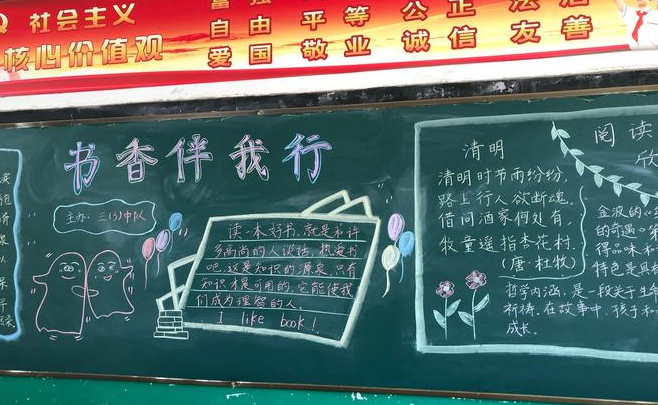 社会主义
核心价值观
富强 平等 公正 法治
自由 平等 公正 法治
爱国 敬业 诚信 友善
书香伴我行
主办：三(3)中队
读一本好书，就是和许
多高尚的人谈话，热爱书
吧，这是知识的源泉，只有
知识才是可用的，它能使我
们成为理智的人。
I like book！
清明
清明时节雨纷纷，
路上行人欲断魂，
借问酒家何处有，
牧童遥指杏花村，
(唐·杜牧)
阅读
欣
金波的《
的奇遇《
得品味和
特色是具
哲学内涵，是一段关于生命
祈祷，在故事中，孩子和
成长。